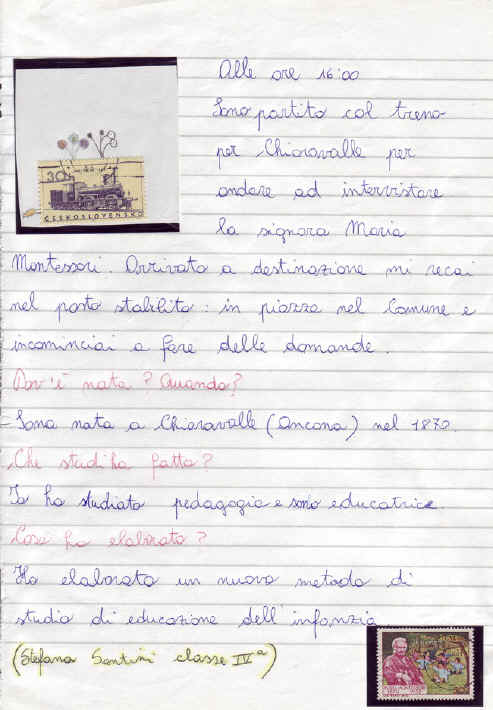 Alle ore 16:00
Sono partito col treno
per Chiaravalle per
andare ad intervistare
la signora Maria
30
ČESKOSLOVENSKO
Montessori. Arrivato a destinazione mi recai
nel posto stabilito: in piazza nel Comune e
incominciai a fare delle domande.
Dov'è nata? Quando?
=Sono nata a Chiaravalle (Ancona) nel 1870.
Che studi ha fatto?
Io ho studiato pedagogia e sono educatrice.
Cosa ha elaborato?
Ho elaborato un nuovo metodo di
studio di educazione dell'infanzia
(Stefano Santini classe IVª)